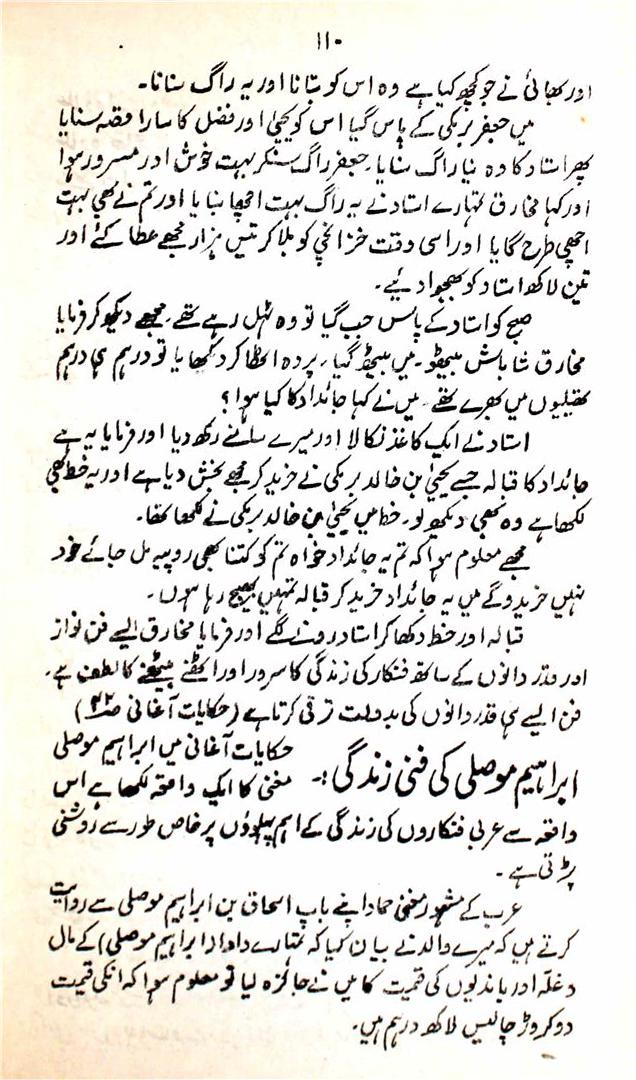 ۱۱۰
اور بھائی نے جو کچھ کیا ہے وہ اس کو بتانا اور یہ راگ سنانا۔
میں جعفر برمکی کے پاس گیا اس کو یحییٰ اور فضل کا سارا قصہ سنایا
پھر استاد کا وہ نیا راگ سنایا۔ جعفر راگ سنکر بہت خوش اور مسرور ہوا
اور کہا مخارق تمہارے استاد نے یہ راگ بہت اچھا بنایا اور تم نے بھی بہت
اچھی طرح گایا اور اسی وقت خزانچی کو بلا کر تیس ہزار مجھے عطا کئے اور
تین لاکھ استاد کو بھجوا دیئے۔
صبح کو استاد کے پاس جب گیا تو وہ ٹہل رہے تھے۔ مجھے دیکھ کر فرمایا
مخارق شاباش بیٹھو۔ میں بیٹھ گیا۔ پردہ اٹھا کر دکھایا تو درہم ہی درہم
تھیلیوں میں بھرے تھے۔ میں نے کہا جائداد کا کیا ہوا؟
استاد نے ایک کاغذ نکالا اور میرے سامنے رکھ دیا اور فرمایا یہ ہے
جائداد کا قبالہ جسے یحییٰ بن خالد برمکی نے خرید کر مجھے بخش دیا ہے اور یہ خط بھی
لکھا ہے وہ بھی دیکھ لو۔ خط میں یحییٰ بن خالد برمکی نے لکھا تھا۔
مجھے معلوم ہوا کہ تم یہ جائداد خواہ تم کو کتنا بھی روپیہ مل جائے خود
نہیں خریدو گے میں یہ جائداد خرید کر قبالہ تمہیں بھیج رہا ہوں۔
قبالہ اور خط دکھا کر استاد رونے لگے اور فرمایا مخارق ایسے فن نواز
اور قدر دانوں کے ساتھ فنکار کی زندگی کا سرور اور اٹھنے بیٹھنے کا لطف ہے۔
فن ایسے ہی قدر دانوں کی بدولت ترقی کرتا ہے (حکایات آغانی صـ۲۲)
ابراہیم موصلی کی فنی زندگی :۔ حکایات آغانی میں ابراہیم موصلی
مغنی کا ایک واقعہ لکھا ہے اس
واقعہ سے عربی فنکاروں کی زندگی کے اہم پہلوؤں پر خاص طور سے روشنی
پڑتی ہے۔
عرب کے مشہور مغنی حماد اپنے باپ اسحاق بن ابراہیم موصلی سے روایت
کرتے ہیں کہ میرے والد نے بیان کیا کہ تمہارے دادا (ابراہیم موصلی) کے مال
و غلہ اور باندیوں کی قیمت کا میں نے جائزہ لیا تو معلوم ہوا کہ انکی قیمت
دو کروڑ چالیس لاکھ درہم ہیں۔